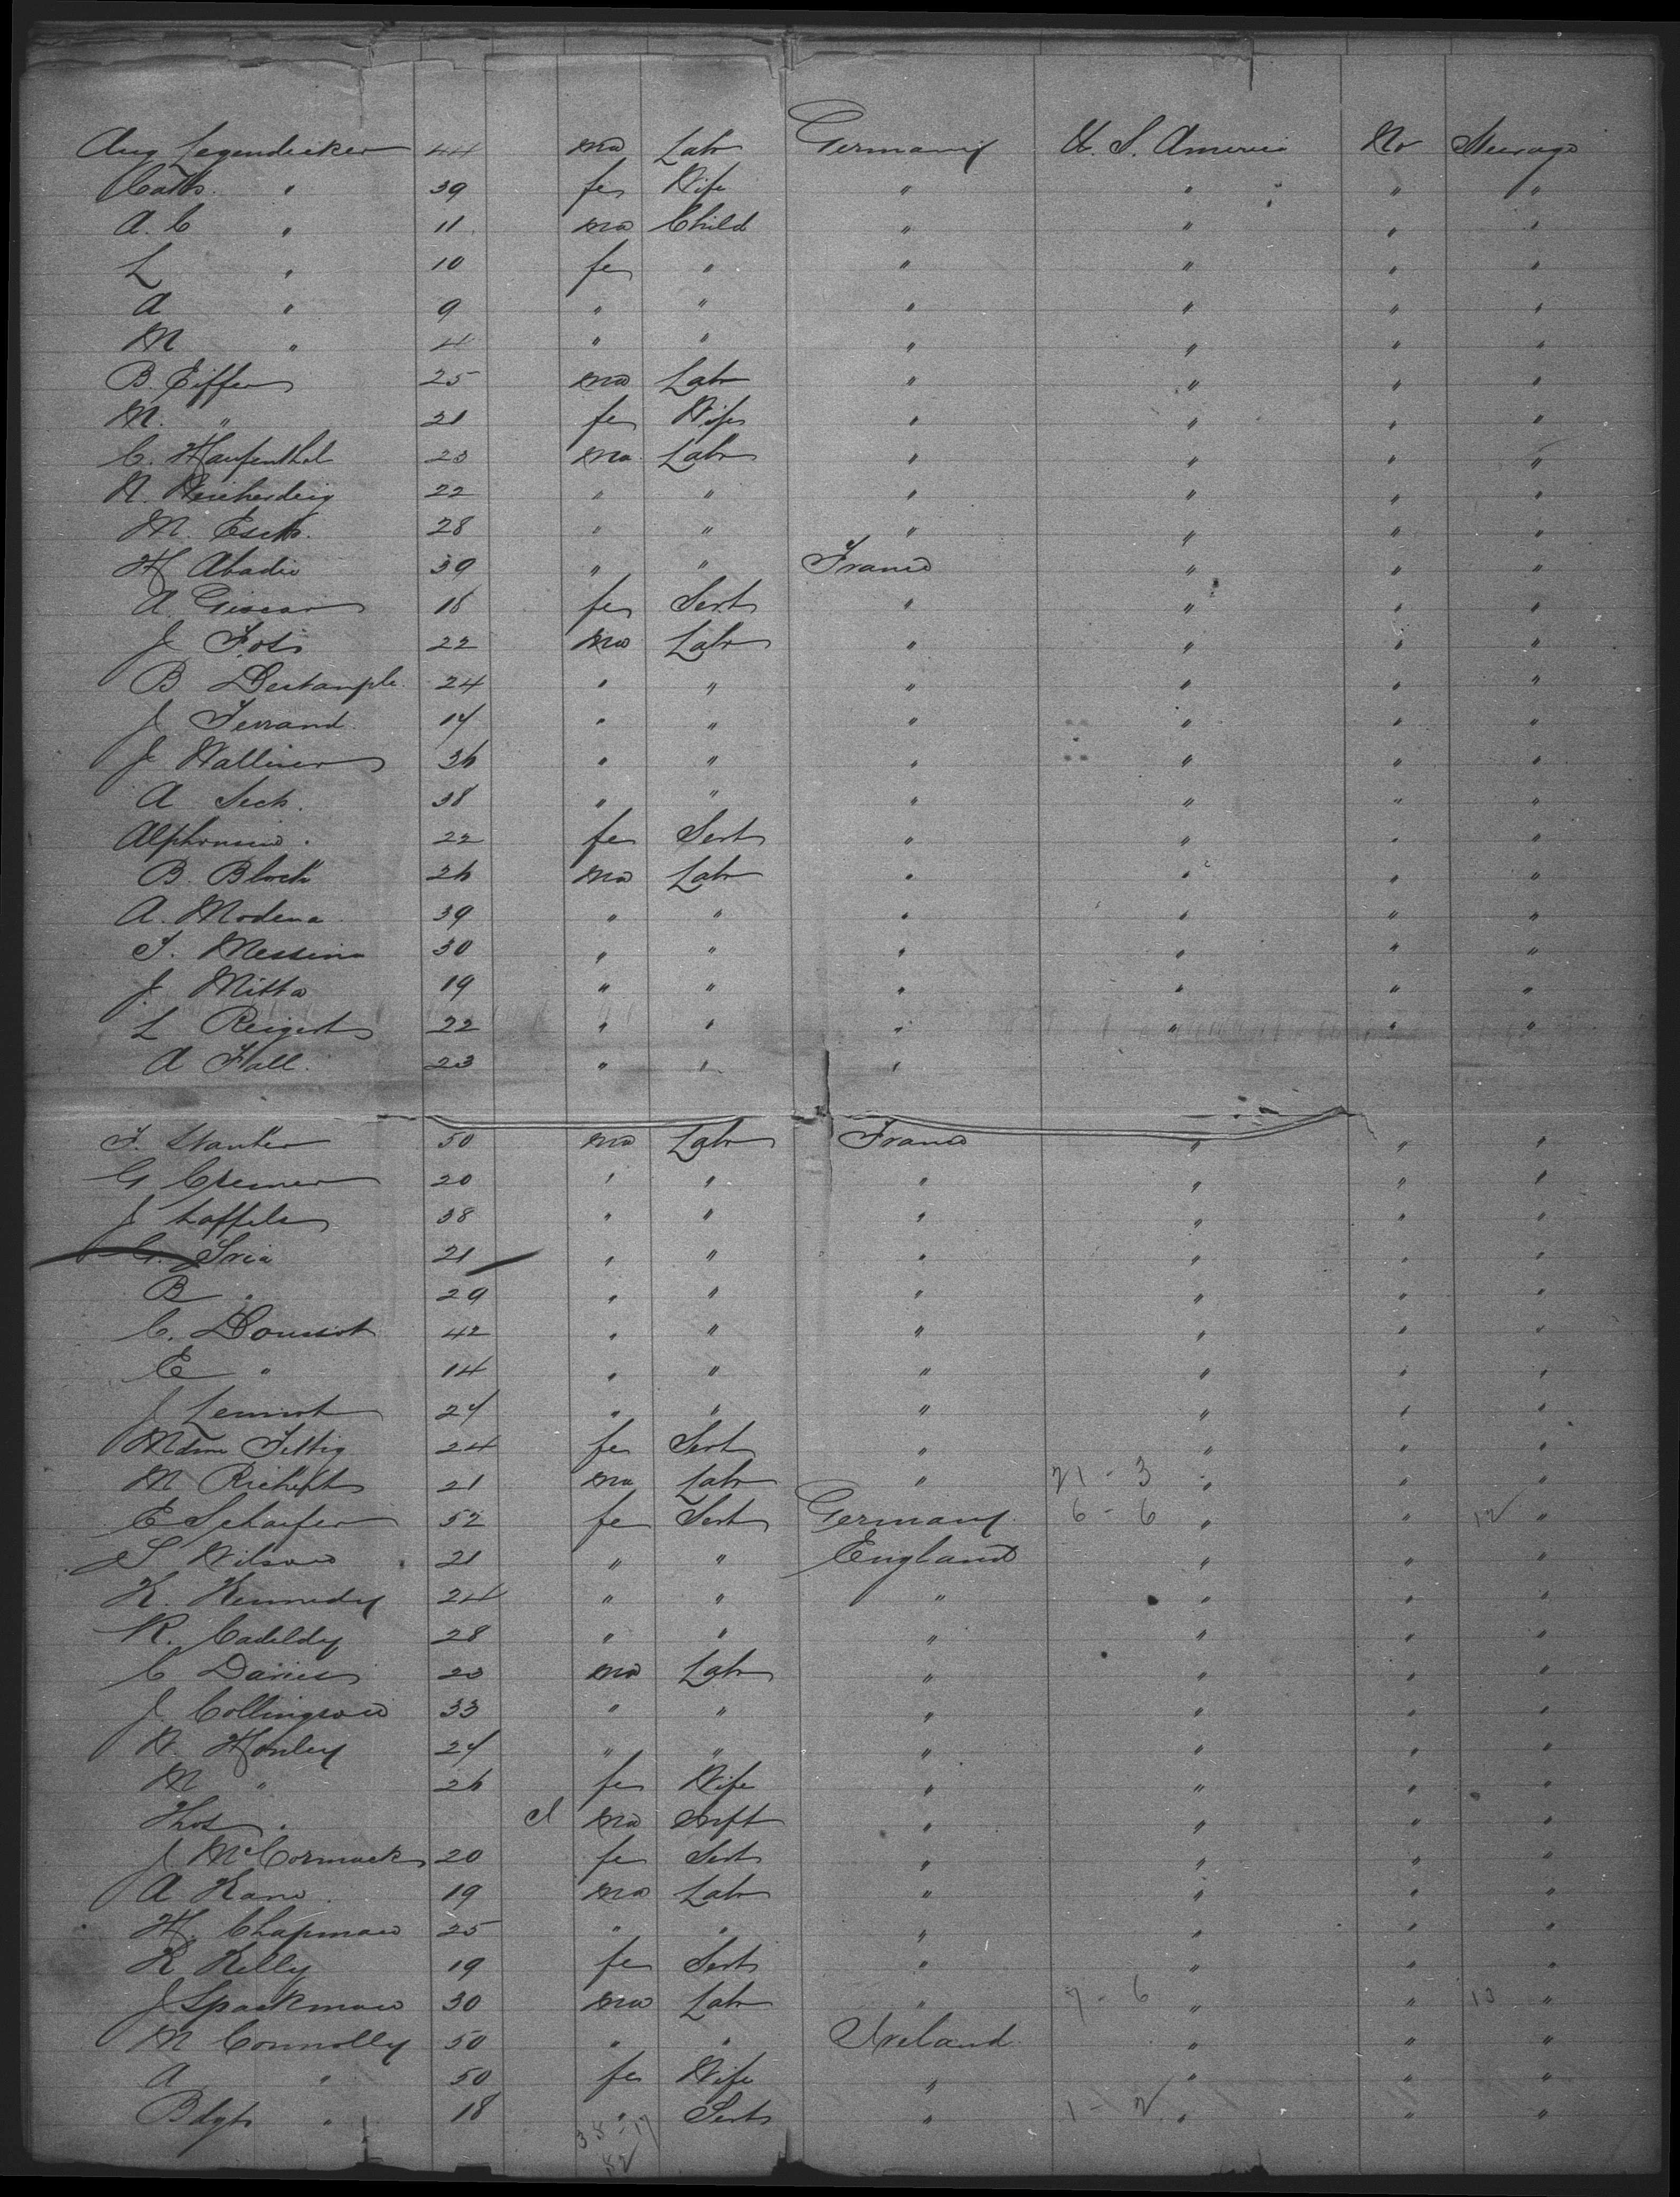 Aug Legendecker 44 ma Labr Germany U. S. America No Steerage
Cath. " 39 fe Wife " " " "
A. C " 11 ma Child " " " "
L " 10 fe " " " " "
A " 9 " " " " " "
M " 4 " " " " " "
B. Eiffer 25 ma Labr " " " "
M. " 21 fe Wife " " " "
C. Haufenthal 23 ma Labr " " " "
N. 22 " " " " " "
M. Esch. 28 " " " " " "
H Abadie 39 " " France " " "
A. 18 fe Sert " " " "
J 22 ma Labr " " " "
B 24 " " " " " "
J Ferrand 17 " " " " " "
J 36 " " " " " "
A Sech. 38 " " " " " "
Alphonsine " 22 fe Sert " " " "
B. Bloch 26 ma Labr " " " "
A. Modena 39 " " " " " "
T. Messina 30 " " " " " "
J. Mitta 19 " " " " " "
L Reigert 22 " " " " " "
A Fall. 23 " " "
F. 50 ma Labr France " " "
G Cremer 20 " " " " " "
J Laffels 38 " " " " " "
G. Sria 21 " " " " " "
B " 29 " " " " " "
C. Doussot 42 " " " " " "
E " 14 " " " " " "
J 27 " " " " " "
Mdme Fettig 24 fe Sert " " " "
M Richert 21 ma Labr " 21 - 3 " " "
E Schaefer 52 fe Sert Germany 6 - 6 " " 12 "
S Wilson 21 " " England " " "
K. Kennedy 24 " " " " " "
R. 28 " " " " " "
C Davies 23 ma Labr " " " "
J. 33 " " " " " "
W. Honley 27 " " " " " "
M " 26 fe Wife " " " "
Thos " 1 ma Inft " " " "
J McCormack 20 fe Sert " " " "
A Kane 19 ma Labr " " " "
H. Chapman 25 " " " " " "
K Kelly 19 fe Sert " " " "
J Spackman 30 ma Labr " 7 - 6 " " 13 "
M Connolly 50 " " Ireland " " "
A " 50 fe Wife " " " "
Bdgt " 18 " Sert " 1 - 2 " " "
38 - 17